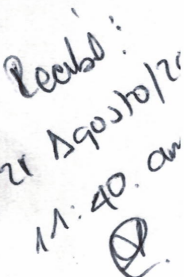 Recibó:
21 Agosto/20
11:40. am